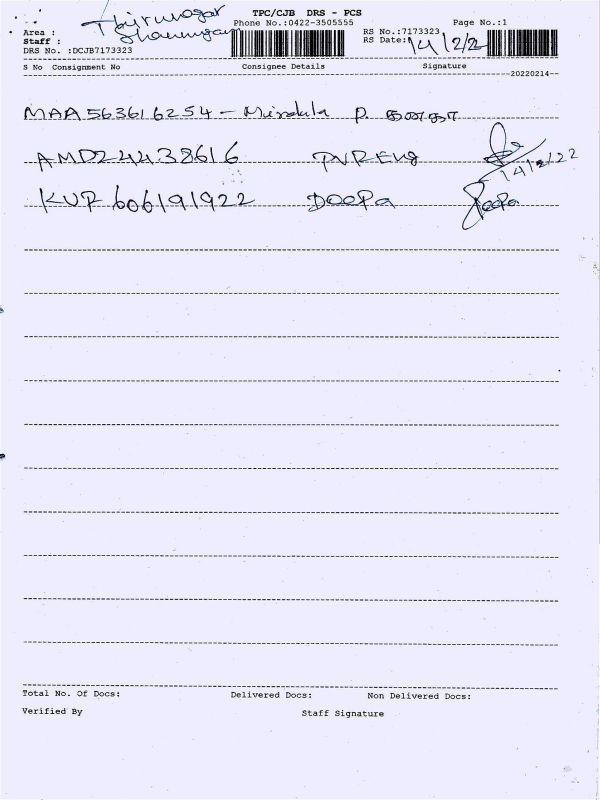 TPC/CJB DRS - PCS
Phone No.:0422-3505555
Page No.:1
Area : Thirunagar
Staff : Shanmugam
DRS No. :DCJB7173323
RS No.:7173323
RS Date: 14/2/2
S No Consignment No Consignee Details Signature
--20220214--
MAA563616254 - Mirdula P. கனகா
AMD24438616 PVR Eng 14/2/22
KUP606191922 Deepa Deepa
Total No. Of Docs: Delivered Docs: Non Delivered Docs:
Verified By Staff Signature